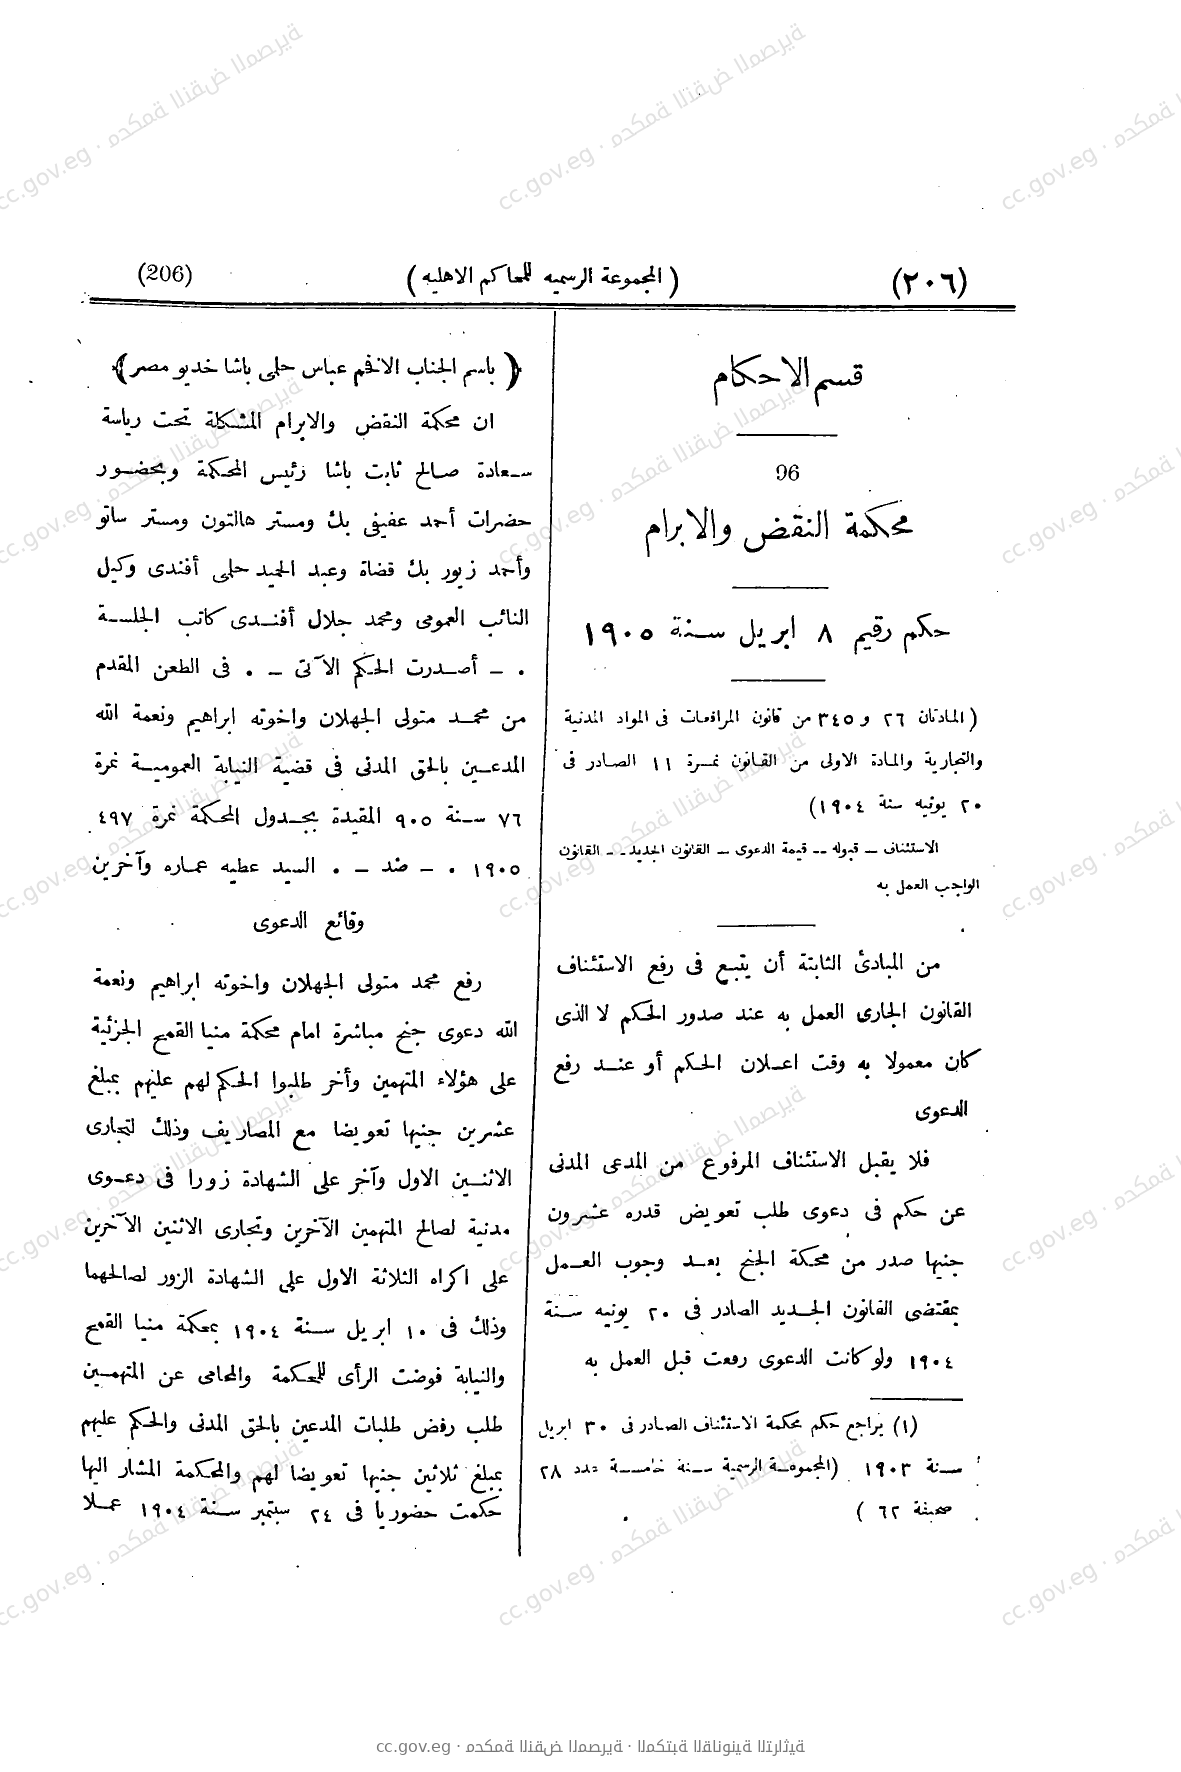 (٢٠٦)
(المجموعة الرسميه للمحاكم الاهليه)
(206)
قسم الاحكام
96
محكمة النقض والابرام
حكم رقيم ٨ ابريل سنة ١٩٠٥
(المادتان ٢٦ و ٣٤٥ من قانون المرافعات فى المواد المدنية
والتجارية والمادة الاولى من القانون نمرة ١١ الصادر فى
٢٠ يونيه سنة ١٩٠٤)
الاستئناف – قبوله – قيمة الدعوى – القانون الجديد – القانون
الواجب العمل به
من المبادئ الثابتة أن يتبع فى رفع الاستئناف
القانون الجارى العمل به عند صدور الحكم لا الذى
كان معمولا به وقت اعلان الحكم أو عند رفع
الدعوى
فلا يقبل الاستئناف المرفوع من المدعى المدنى
عن حكم فى دعوى طلب تعويض قدره عشرون
جنيها صدر من محكمة الجنح بعد وجوب العمل
بمقتضى القانون الجديد الصادر فى ٢٠ يونيه سنة
١٩٠٤ ولو كانت الدعوى رفعت قبل العمل به
(١) يراجع حكم محكمة الاستئناف الصادر فى ٣٠ ابريل
سنة ١٩٠٣ (المجموعة الرسمية سنة خامسة عدد ٢٨
صحيفة ٦٢)
﴿باسم الجناب الافخم عباس حلمى باشا خديو مصر﴾
ان محكمة النقض والابرام المشكلة تحت رياسة
سعادة صالح ثابت باشا رئيس المحكمة وبحضور
حضرات أحمد عفيفى بك ومستر هالتون ومستر ساتو
وأحمد زيور بك قضاة وعبد الحميد حلمى أفندى وكيل
النائب العمومى ومحمد جلال أفندى كاتب الجلسة
٠ – أصدرت الحكم الآتى – ٠ فى الطعن المقدم
من محمد متولى الجهلان واخوته ابراهيم ونعمة الله
المدعين بالحق المدنى فى قضية النيابة العمومية نمرة
٧٦ سنة ٩٠٥ المقيدة بجدول المحكمة نمرة ٤٩٧
١٩٠٥ ٠ – ضد – ٠ السيد عطيه عماره وآخرين
وقائع الدعوى
رفع محمد متولى الجهلان واخوته ابراهيم ونعمة
الله دعوى جنح مباشرة امام محكمة منيا القمح الجزئية
على هؤلاء المتهمين وأخر طلبوا الحكم لهم عليهم بمبلغ
عشرين جنيها تعويضا مع المصاريف وذلك لتجارى
الاثنين الاول وآخر على الشهادة زورا فى دعوى
مدنية لصالح المتهمين الآخرين وتجارى الاثنين الآخرين
على اكراه الثلاثة الاول على الشهادة الزور لصالحهما
وذلك فى ١٠ ابريل سنة ١٩٠٤ بمحكمة منيا القمح
والنيابة فوضت الرأى للمحكمة والمحامى عن المتهمين
طلب رفض طلبات المدعين بالحق المدنى والحكم عليهم
بمبلغ ثلاثين جنيها تعويضا لهم والمحكمة المشار اليها
حكمت حضوريا فى ٢٤ سبتمبر سنة ١٩٠٤ عملا
cc.gov.eg · محكمة النقض المصرية · المكتبة القانونية التراثية